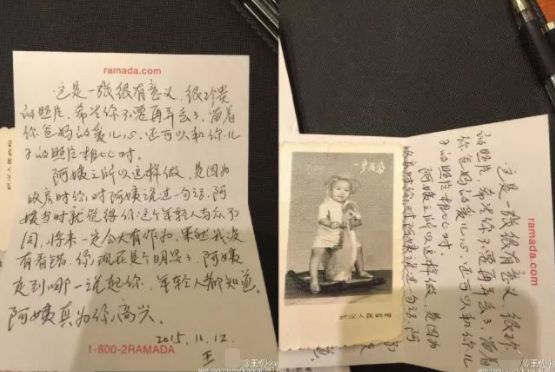 ramada.com
这是一张很有意义、很珍贵
的照片，希望你不要再弄丢了，留着
你爸妈的爱儿心，还可以和你儿
子的照片相比对。
阿姨之所以这样做，是因为
收房时你对阿姨说过一句话，阿
姨当时就觉得你这个年轻人与众不
同，将来一定会大有作为，果然我没
有看错，你现在是个明星了，阿姨
走到哪一说起你，年轻人都知道，
阿姨真为你高兴。
2015.11.12.
王
1-800-2RAMADA
ramada.com
这是一张很有意义、很珍
的照片，希望你不要再弄丢了
你爸妈的爱儿心，还可以和你儿
子的照片相比对。
阿姨之所以这样做，是因为
收房时你对阿姨说过一句话，阿
一岁留影
武汉人民照相